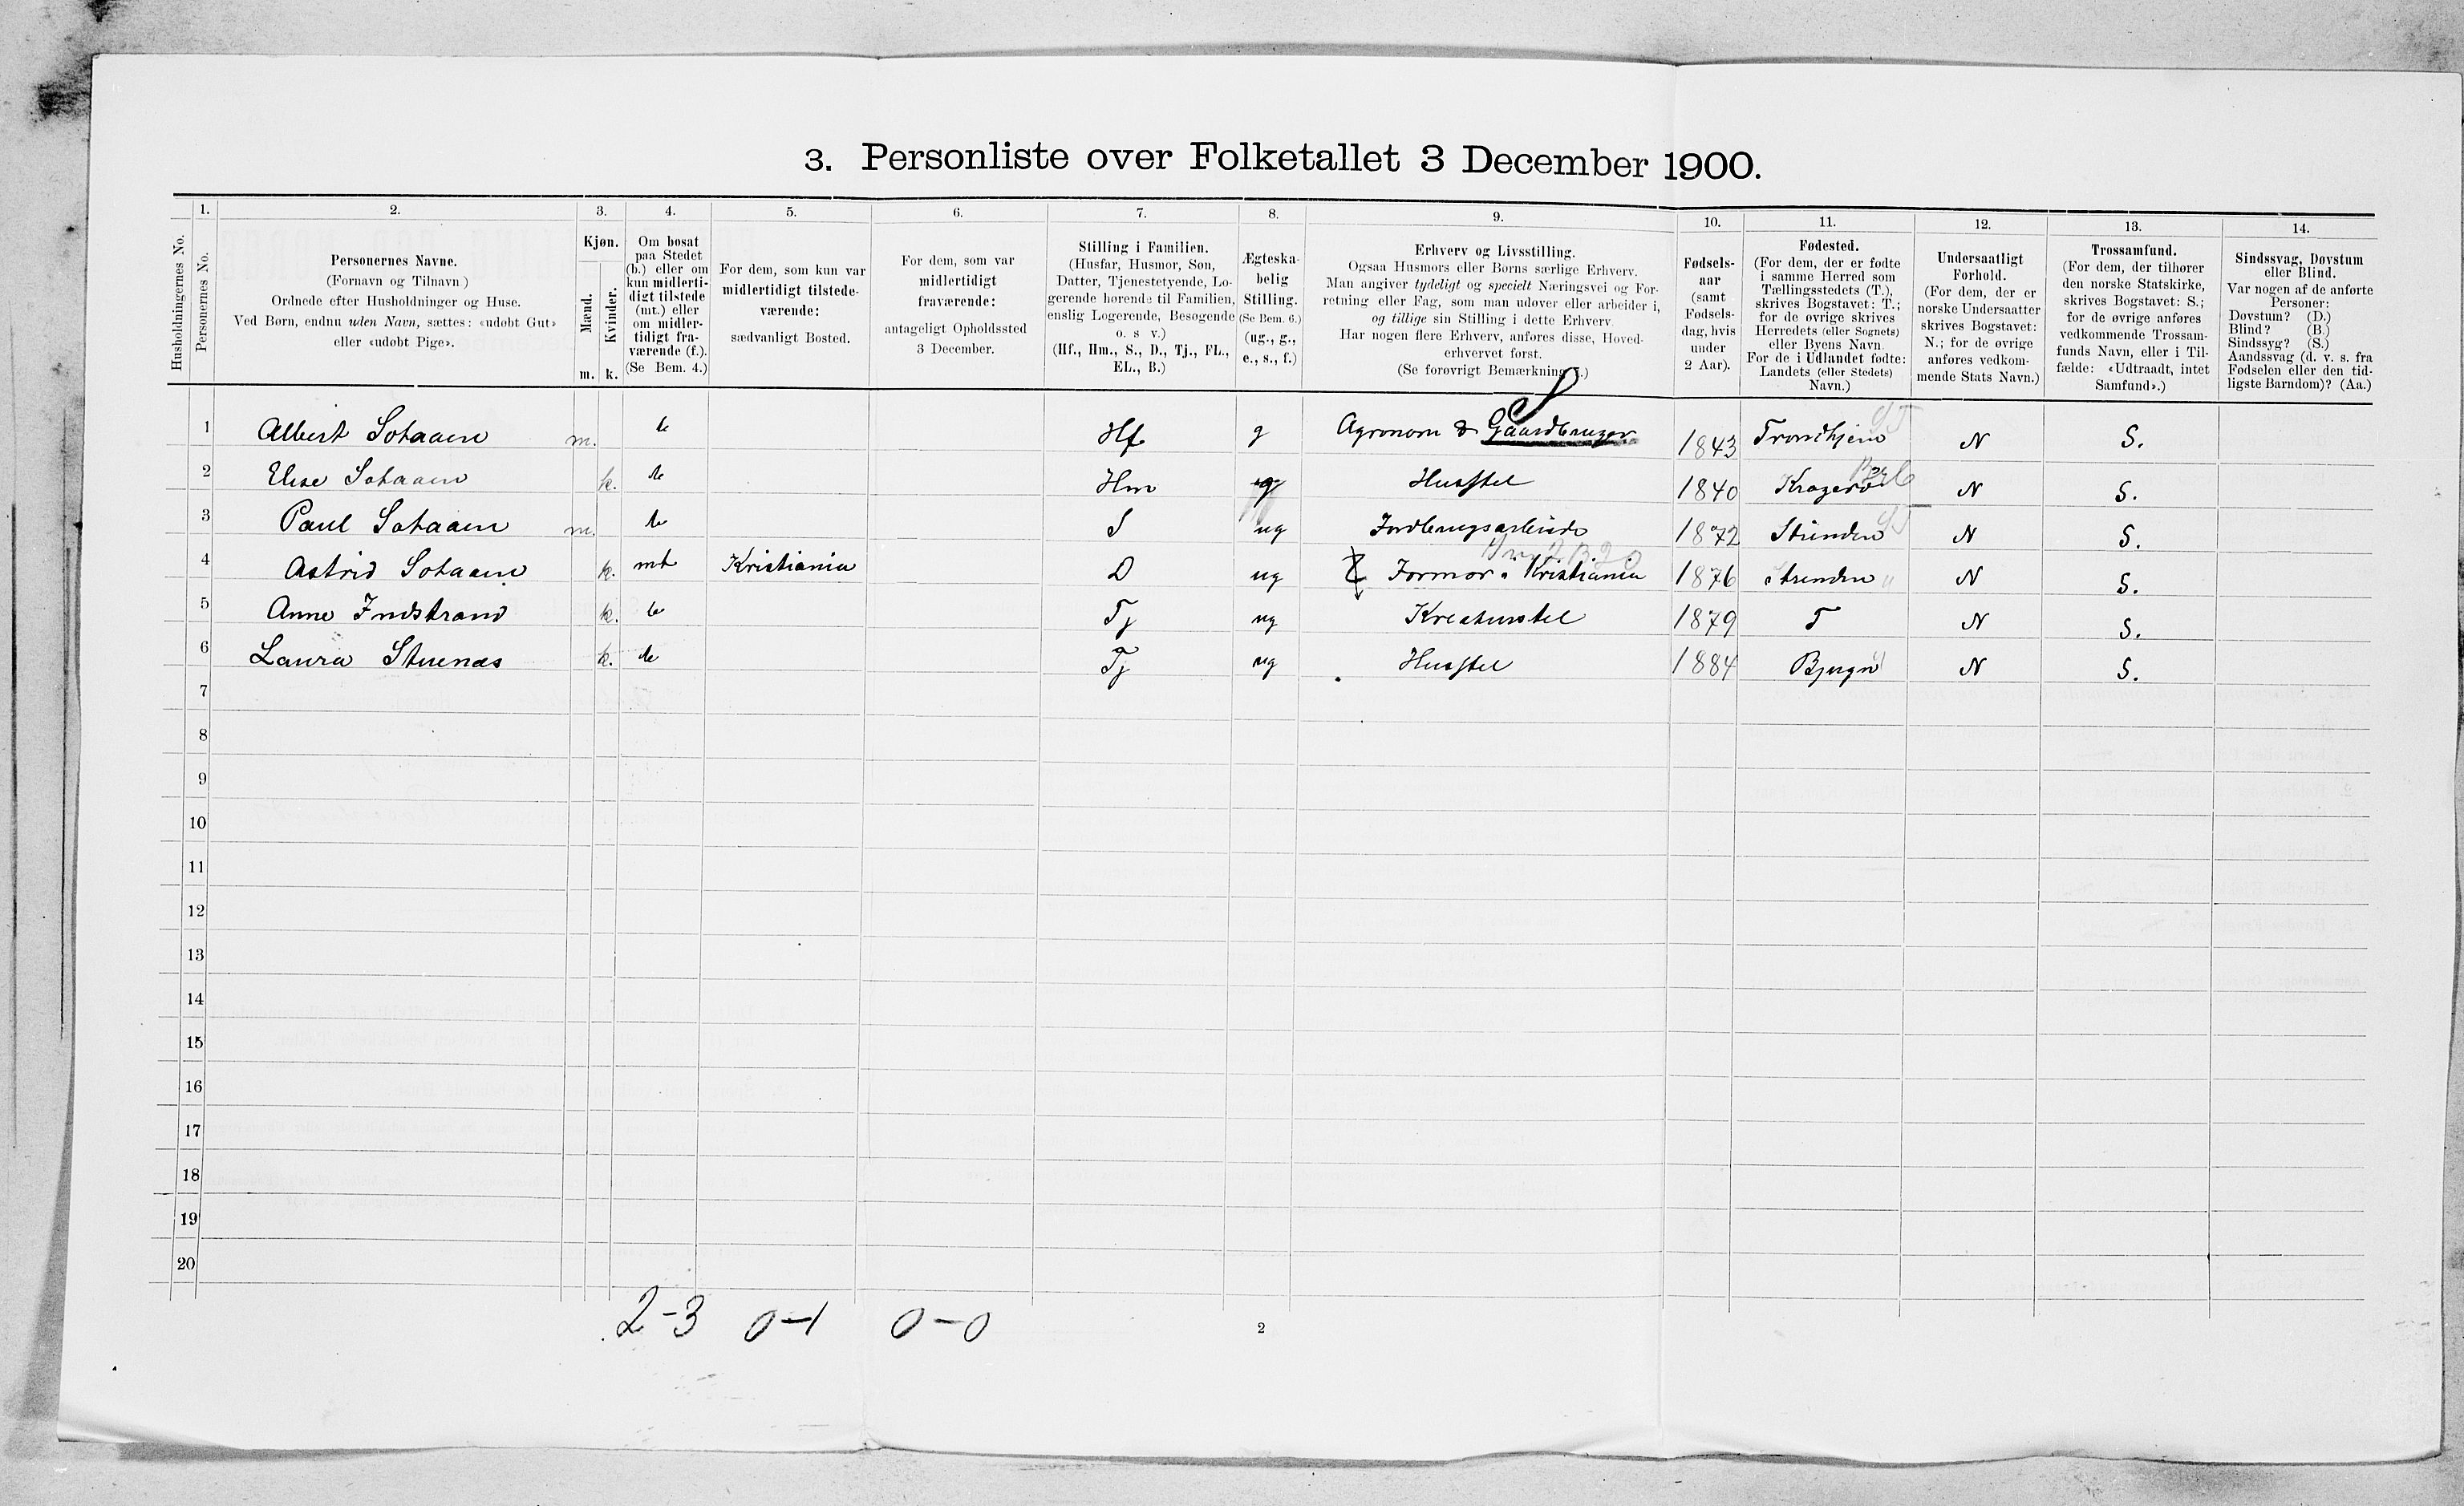 3. Personliste over Folketallet 3 December 1900.
1. 2. 3. 4. 5. 6. 7. 8. 9. 10. 11. 12. 13. 14.
Husholdningernes No.
Personernes No.
Personernes Navne.
(Fornavn og Tilnavn)
Ordnede efter Husholdninger og Huse.
Ved Børn, endnu uden Navn, sættes: «udøbt Gut»
eller «udøbt Pige».
Kjøn.
Mænd.
Kvinder.
m. k.
Om bosat
paa Stedet
(b.) eller om
kun midlerti-
digt tilstede
(mt.) eller
om midler-
tidigt fra-
værende (f.).
(Se Bem. 4.)
For dem, som kun var
midlertidigt tilstede-
værende:
sædvanligt Bosted.
For dem, som var
midlertidigt
fraværende:
antageligt Opholdssted
3 December.
Stilling i Familien.
(Husfar, Husmor, Søn,
Datter, Tjenestetyende, Lo-
gerende hørende til Familien,
enslig Logerende, Besøgende
o. s v.)
(Hf., Hm., S., D., Tj., FL.,
EL., B.)
Ægteska-
belig
Stilling.
(Se Bem. 6.)
(ug., g.,
e., s., f.)
Erhverv og Livsstilling.
Ogsaa Husmors eller Børns særlige Erhverv.
Man angiver tydeligt og specielt Næringsvei og For-
retning eller Fag, som man udøver eller arbeider i,
og tillige sin Stilling i dette Erhverv.
Har nogen flere Erhverv, anføres disse, Hoved-
erhvervet først.
(Se forøvrigt Bemærkning .)
Fødsels-
aar
(samt
Fødsels-
dag, hvis
under
2 Aar).
Fødested.
(For dem, der er fødte
i samme Herred som
Tællingsstedets (T.),
skrives Bogstavet: T.;
for de øvrige skrives
Herredets (eller Sognets)
eller Byens Navn.
For de i Udlandet fødte:
Landets (eller Stedets)
Navn.)
Undersaatligt
Forhold.
(For dem, der er
norske Undersaatter
skrives Bogstavet:
N.; for de øvrige
anføres vedkom-
mende Stats Navn.)
Trossamfund.
(For dem, der tilhører
den norske Statskirke,
skrives Bogstavet: S.;
for de øvrige anføres
vedkommende Trossam-
funds Navn, eller i Til-
fælde: «Udtraadt, intet
Samfund».)
Sindssvag, Døvstum
eller Blind.
Var nogen af de anførte
Personer:
Døvstum? (D.)
Blind? (B.)
Sindssyg? (S.)
Aandssvag (d. v. s. fra
Fødselen eller den tid-
ligste Barndom)? (Aa.)
1 Albert Sohaaen m. b Hf g Agronom & Gaardbruger 1843 Trondhjem N S.
2 Elise Sohaaen k. b Hm g Husstel 1840 Kragerø N S.
3 Paul Sohaaen m. b S ug Jordbrugsarbeide 1872 Strinden N S.
4 Astrid Sohaaen k. mt Kristiania D ug Jormor i Kristiania 1876 Strinden N S.
5 Anne Indstrand k. b Tj ug Kreaturstel 1879 T N S.
6 Laura Stuenæs k. b Tj ug Husstel 1884 Bjugn N S.
7
8
9
10
11
12
13
14
15
16
17
18
19
20
2-3 0-1 0-0
2